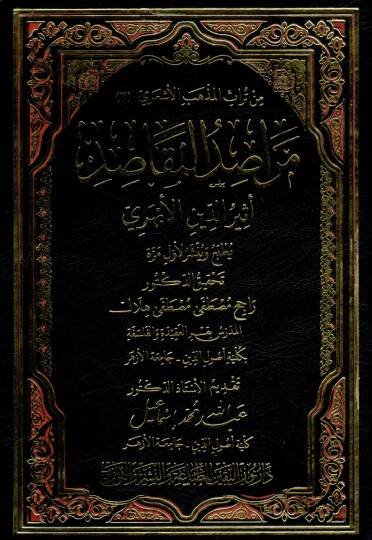 من تراث المذهب الأشعري (٢)
مراصد المقاصد
أثير الدين الأبهري
يطبع وينشر لأول مرة
تحقيق الدكتور
راجح مصطفى مصطفى هلال
المدرس بقسم العقيدة والفلسفة
بكلية أصول الدين - جامعة الأزهر
تقديم الأستاذ الدكتور
عبدالله محمد إسماعيل
كلية أصول الدين - جامعة الأزهر
دار نور اليقين للطباعة والنشر والتوزيع